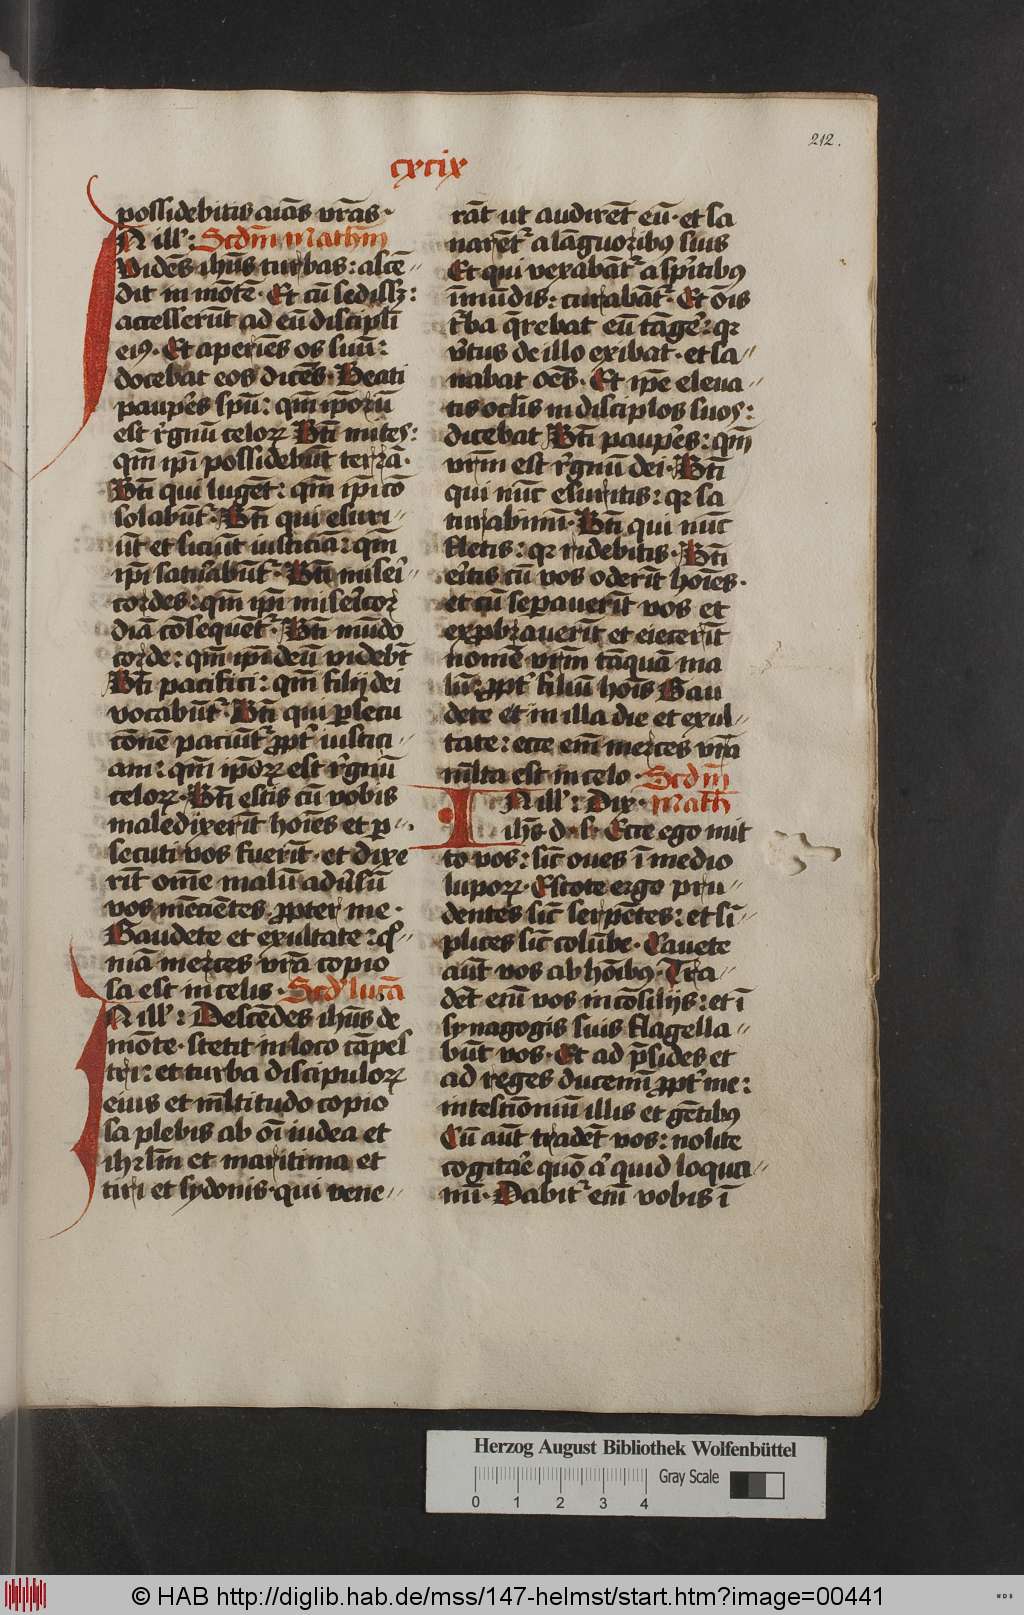 212.
cxcix
possidebitis aīas vr̄as·
N ill': Scdm̄ Mathm̄
Vidēs ihūs turbas: ascē-
dit in mōtē· Et cū sedissz:
accesserūt ad eū discipli
ei9· Et aperiēs os suū:
docebat eos dicēs· Beati
paup̄es sp̄u: qm̄ ip̄orū
est rēgnū celoꝝ Bt̄i mites:
qm̄ ip̄i possidebūt terrā·
Bt̄i qui lugēt: qm̄ ip̄i cō
solabūt᷑· Bt̄i qui esuri-
ūt et siciūt iusticiā: qm̄
ip̄i saturabūt᷑· Bt̄i miseri-
cordes: qm̄ ip̄i misericor
diā cōsequēt᷑· Bt̄i mūdo
corde: qm̄ ip̄i deū videbt̄
Bt̄i pacifici: qm̄ filij dei
vocabūt᷑· Bt̄i qui ꝑsecu
cōnē paciūt᷑ ꝓpt᷑ iustici-
am: qm̄ ip̄oꝝ est rēgnū
celoꝝ· Bt̄i estis cū vobis
maledixerīt hoīes et ꝑ-
secuti vos fuerīt· et dixe
rīt om̄e malū adūsū
vos mēciētes ꝓpter me·
Gaudete et exultate: qō-
niā merces vr̄a copio
sa est in celis· Scd' lucā
N ill': Descēdes ihūs de
mōte· stetit in loco cāpes
tri: et turba discipuloꝝ
eius et ml̄titudo copio
sa plebis ab oī iudea et
ihrlm̄ et maritima et
tiri et sydonis· qui vene-
rāt ut audirēt eū· et sa
narēt᷑ a lāguorib9 suis
Et qui vexabāt᷑ a sp̄itib9
īmūdis: curabāt᷑· Et ōis
t᷑ba q̄rebat eū tāgē: qꝛ
v̄tus de illo exibat· et sa-
nabat oēs· Et ip̄e eleua-
tis oclīs in disciplos suos:
dicebat Bt̄i paup̄es: qm̄
vrm̄ est rēgnū dei· Bt̄i
qui nūc esuritis: qꝛ sa
turabimī· Bt̄i qui nūc
fletis: qꝛ ridebitis· Bt̄i
er̄itis cū vos oderīt hoīes·
et cū sepauerīt vos et
exprobrauerīt et eiecerīt
nomē vrm̄ tāquā ma
lū: ꝓpt᷑ filiū hoīs Gau
dete et in illa die et exul-
tate: ecce em̄ merces vr̄a
ml̄ta est in celo· Scdm̄
IN ill': Dix· Math
ihs· d· s· Ecce ego mit
to vos: sic̄ oues ī medio
lupoꝝ· Estote ergo pru-
dentes sic̄ serpētes: et sī-
plices sic̄ colūbe· Cauete
aūt vos ab hoīb9· Tra-
dēt em̄ vos in cōsilijs: et ī
synagogis suis flagella-
būt vos· Et ad p̄sides et
ad reges ducemī ꝓpt᷑ me:
in testīoniū illis et gētib9
Cū aūt tradēt vos: nolite
cogitaē quō a᷑ quid loqua-
mī· Dabit᷑ em̄ vobis ī
Herzog August Bibliothek Wolfenbüttel
Gray Scale
0 1 2 3 4
© HAB http://diglib.hab.de/mss/147-helmst/start.htm?image=00441
WDB